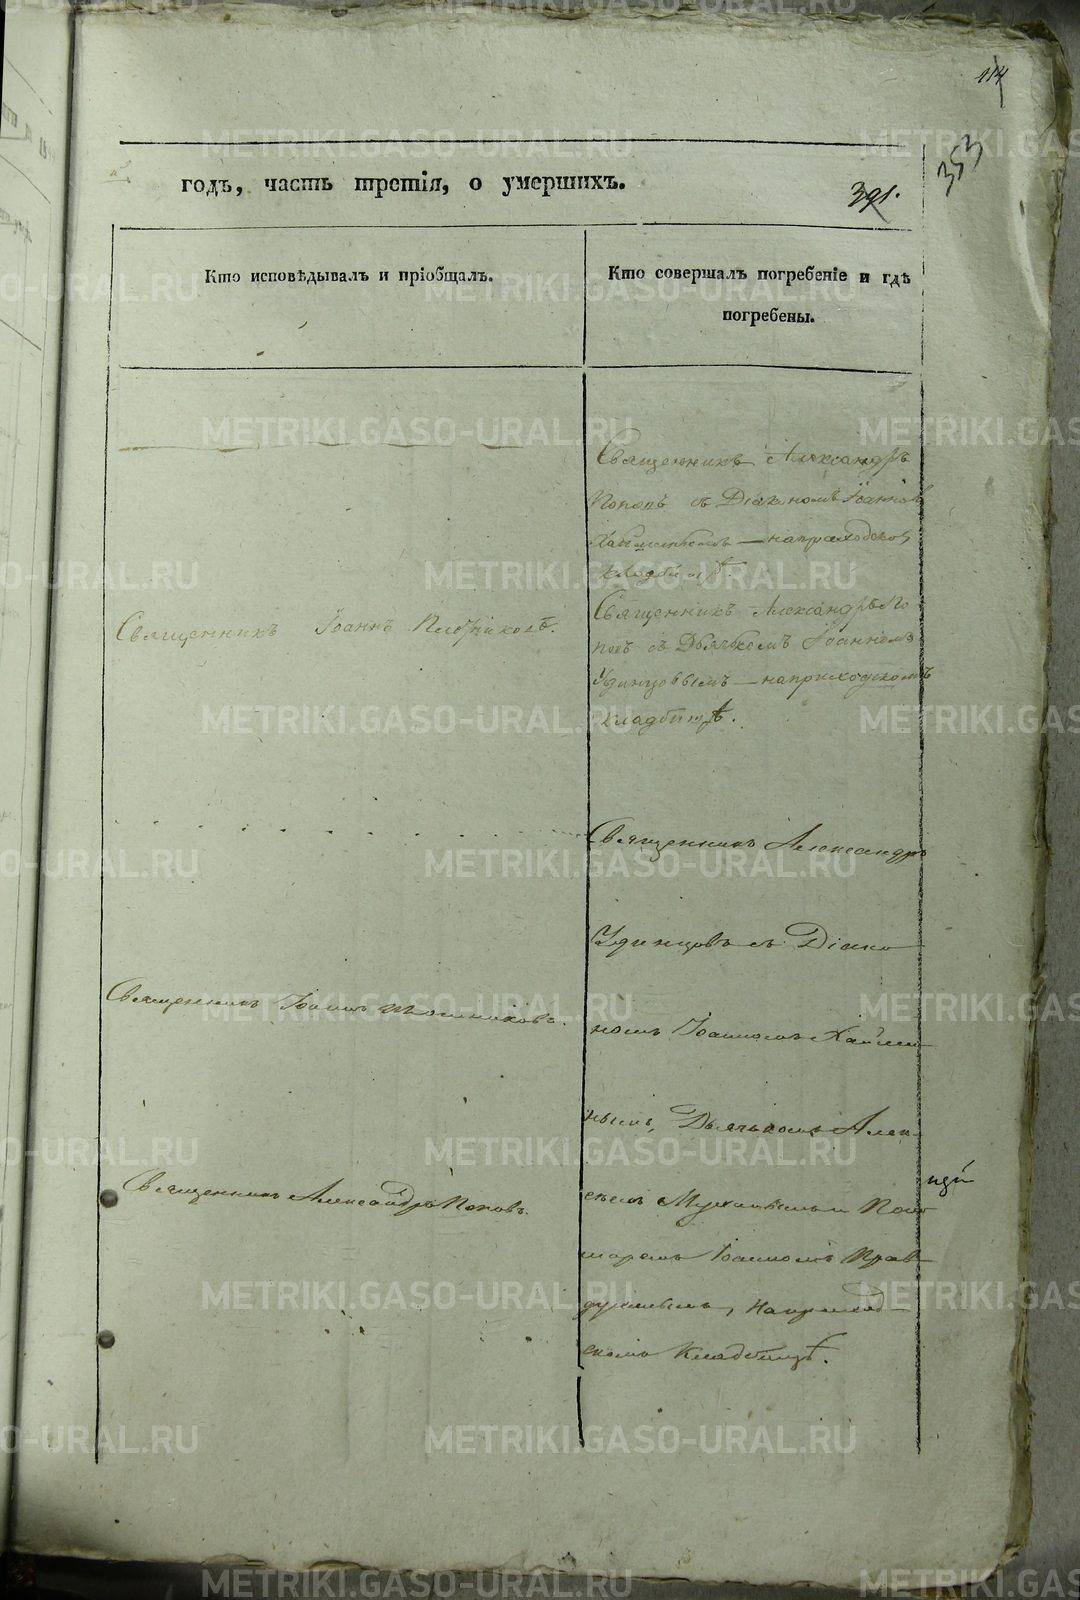 114
353
годъ, часть третія, о умершихъ.
391.
Кто исповѣдывалъ и пріобщалъ.
Кто совершалъ погребеніе и гдѣ
погребены.
Священникъ Александръ
Поповъ съ Діакономъ Іоанномъ
на приходскомъ
кладбищѣ.
Священникъ Іоаннъ
Священникъ Александръ По
повъ съ Дьячкомъ Іоанномъ
Удинцовымъ — на приходскомъ
кладбищѣ.
Священникъ Александръ
Удинцовъ съ Діако
Священникъ Іоаннъ
номъ Іоанномъ
нымъ, Дьячкомъ Алек
Священникъ Александръ Поповъ.
сѣемъ и Поно
маремъ Іоанномъ
на приход
скомъ Кладбищѣ.
METRIKI.GASO-URAL.RU